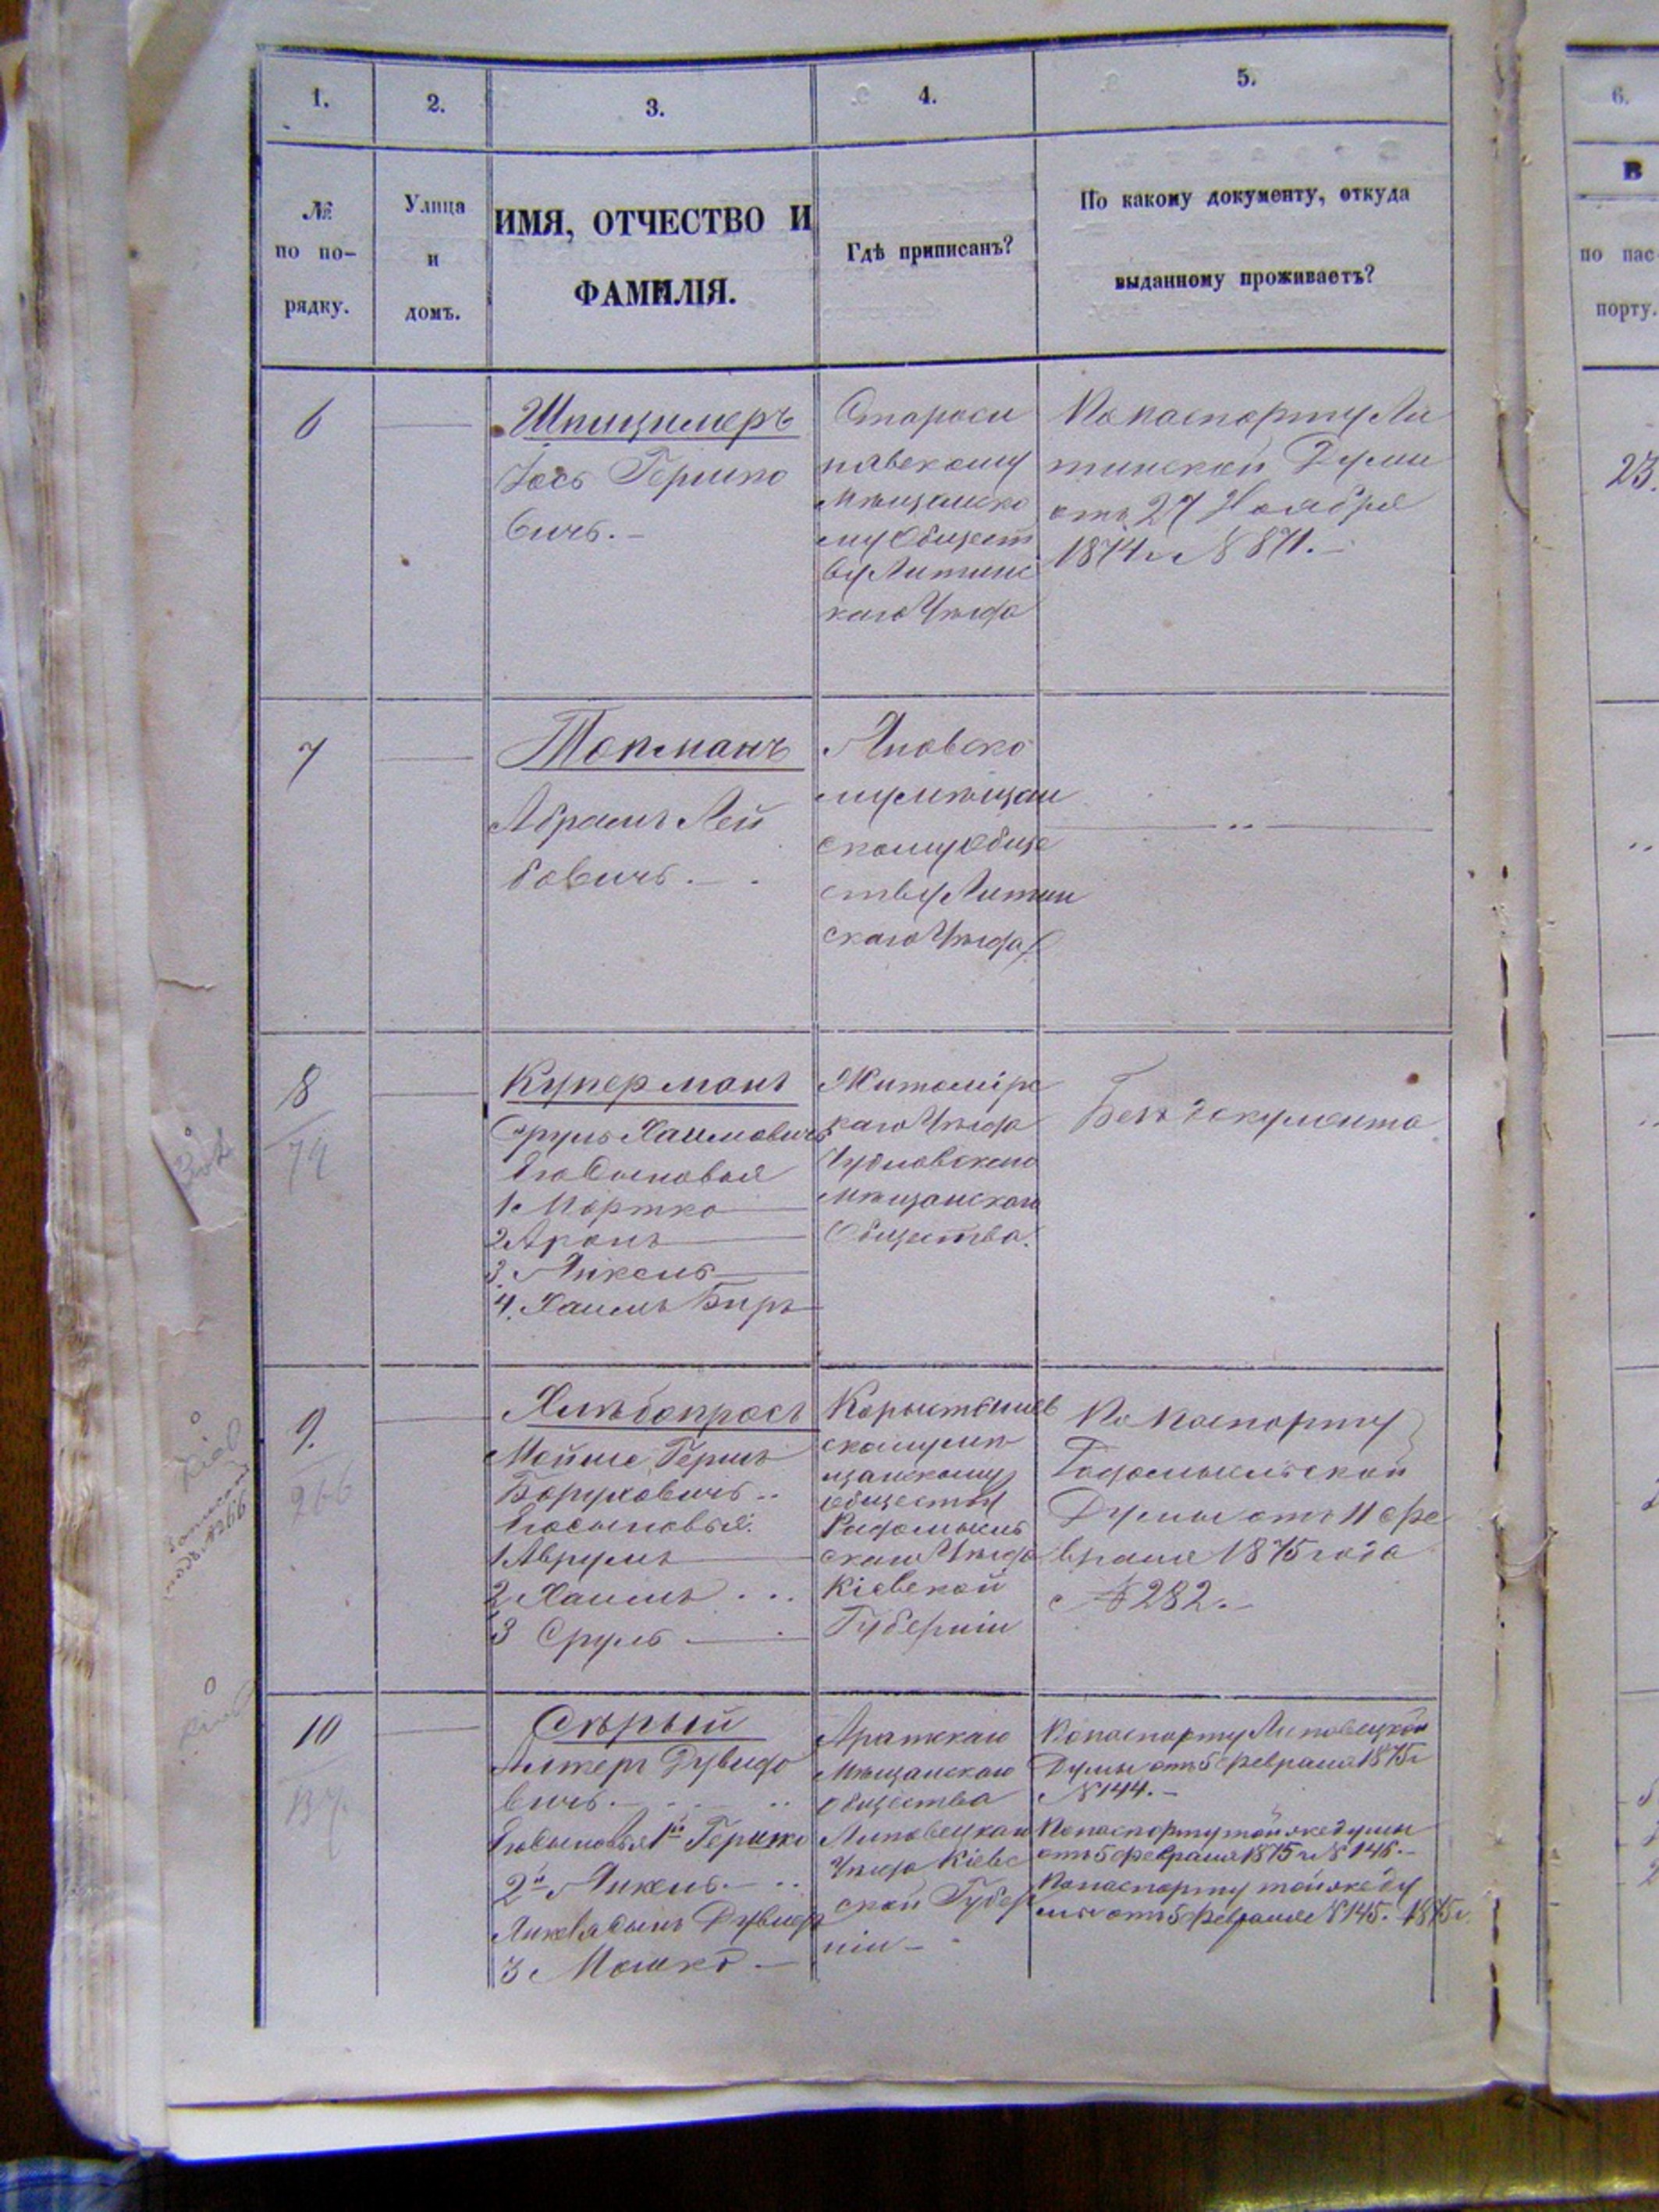 1.
2.
3.
4.
5.
6.
№
по по-
рядку.
Улица
и
домъ.
ИМЯ, ОТЧЕСТВО И
ФАМИЛІЯ.
Гдѣ приписанъ?
По какому документу, откуда
выданному проживаетъ?
В
по пас
порту.
6
Шпицимеръ
Іось Гершко
вичъ. —
Староси
нявскому
Мѣщанско
му Общест
ву Литинс
каго Уѣзда
По паспорту Ли
тинской Думы
отъ 27 Ноября
1874 г № 871. —
23.
7
Токманъ
Абрамъ Лей
бовичъ. —
Яновско
му мѣщан
скому обще
ству Литин
скаго Уѣзда
— „ —
8
74
Куперманъ
Сруль Хаимовичъ
Его Сыновья
1. Мортко
2 Аронъ
3. Янкель
4. Хаимъ Беръ
Житомірс
каго Уѣзда
Чудновскаго
мѣщанскаго
Общества.
Безъ документа
9.
266
записанъ
подъ № 266
Хлѣбопросъ
Мойше Гершъ
Боруховичъ
Его сыновья:
1 Аврумъ
2 Хаимъ
3 Сруль
Коростышев
скому мѣ
щанскому
обществу
Радомысль
скаго Уѣзда
Кіевской
Губерніи
По Паспорту
Радомысльской
Думы отъ 11 фе
враля 1875 года
№ 282. —
10
137.
Сѣрый
Дувидо
вичъ. —
Его Сыновья 1й Гершко
2й Янкель. —
3 Мошко —
Мѣщанскаго
общества
Липовецкаго
Уѣзда Кіевс
ской Губер
ніи —
По паспорту Липовецкой
Думы отъ 5 февраля 1875 г
№ 144. —
По паспорту той же думы
отъ 5 февраля 1875 г № 146. —
По паспорту той же ду
мы отъ 5 февраля № 145. 1875 г.